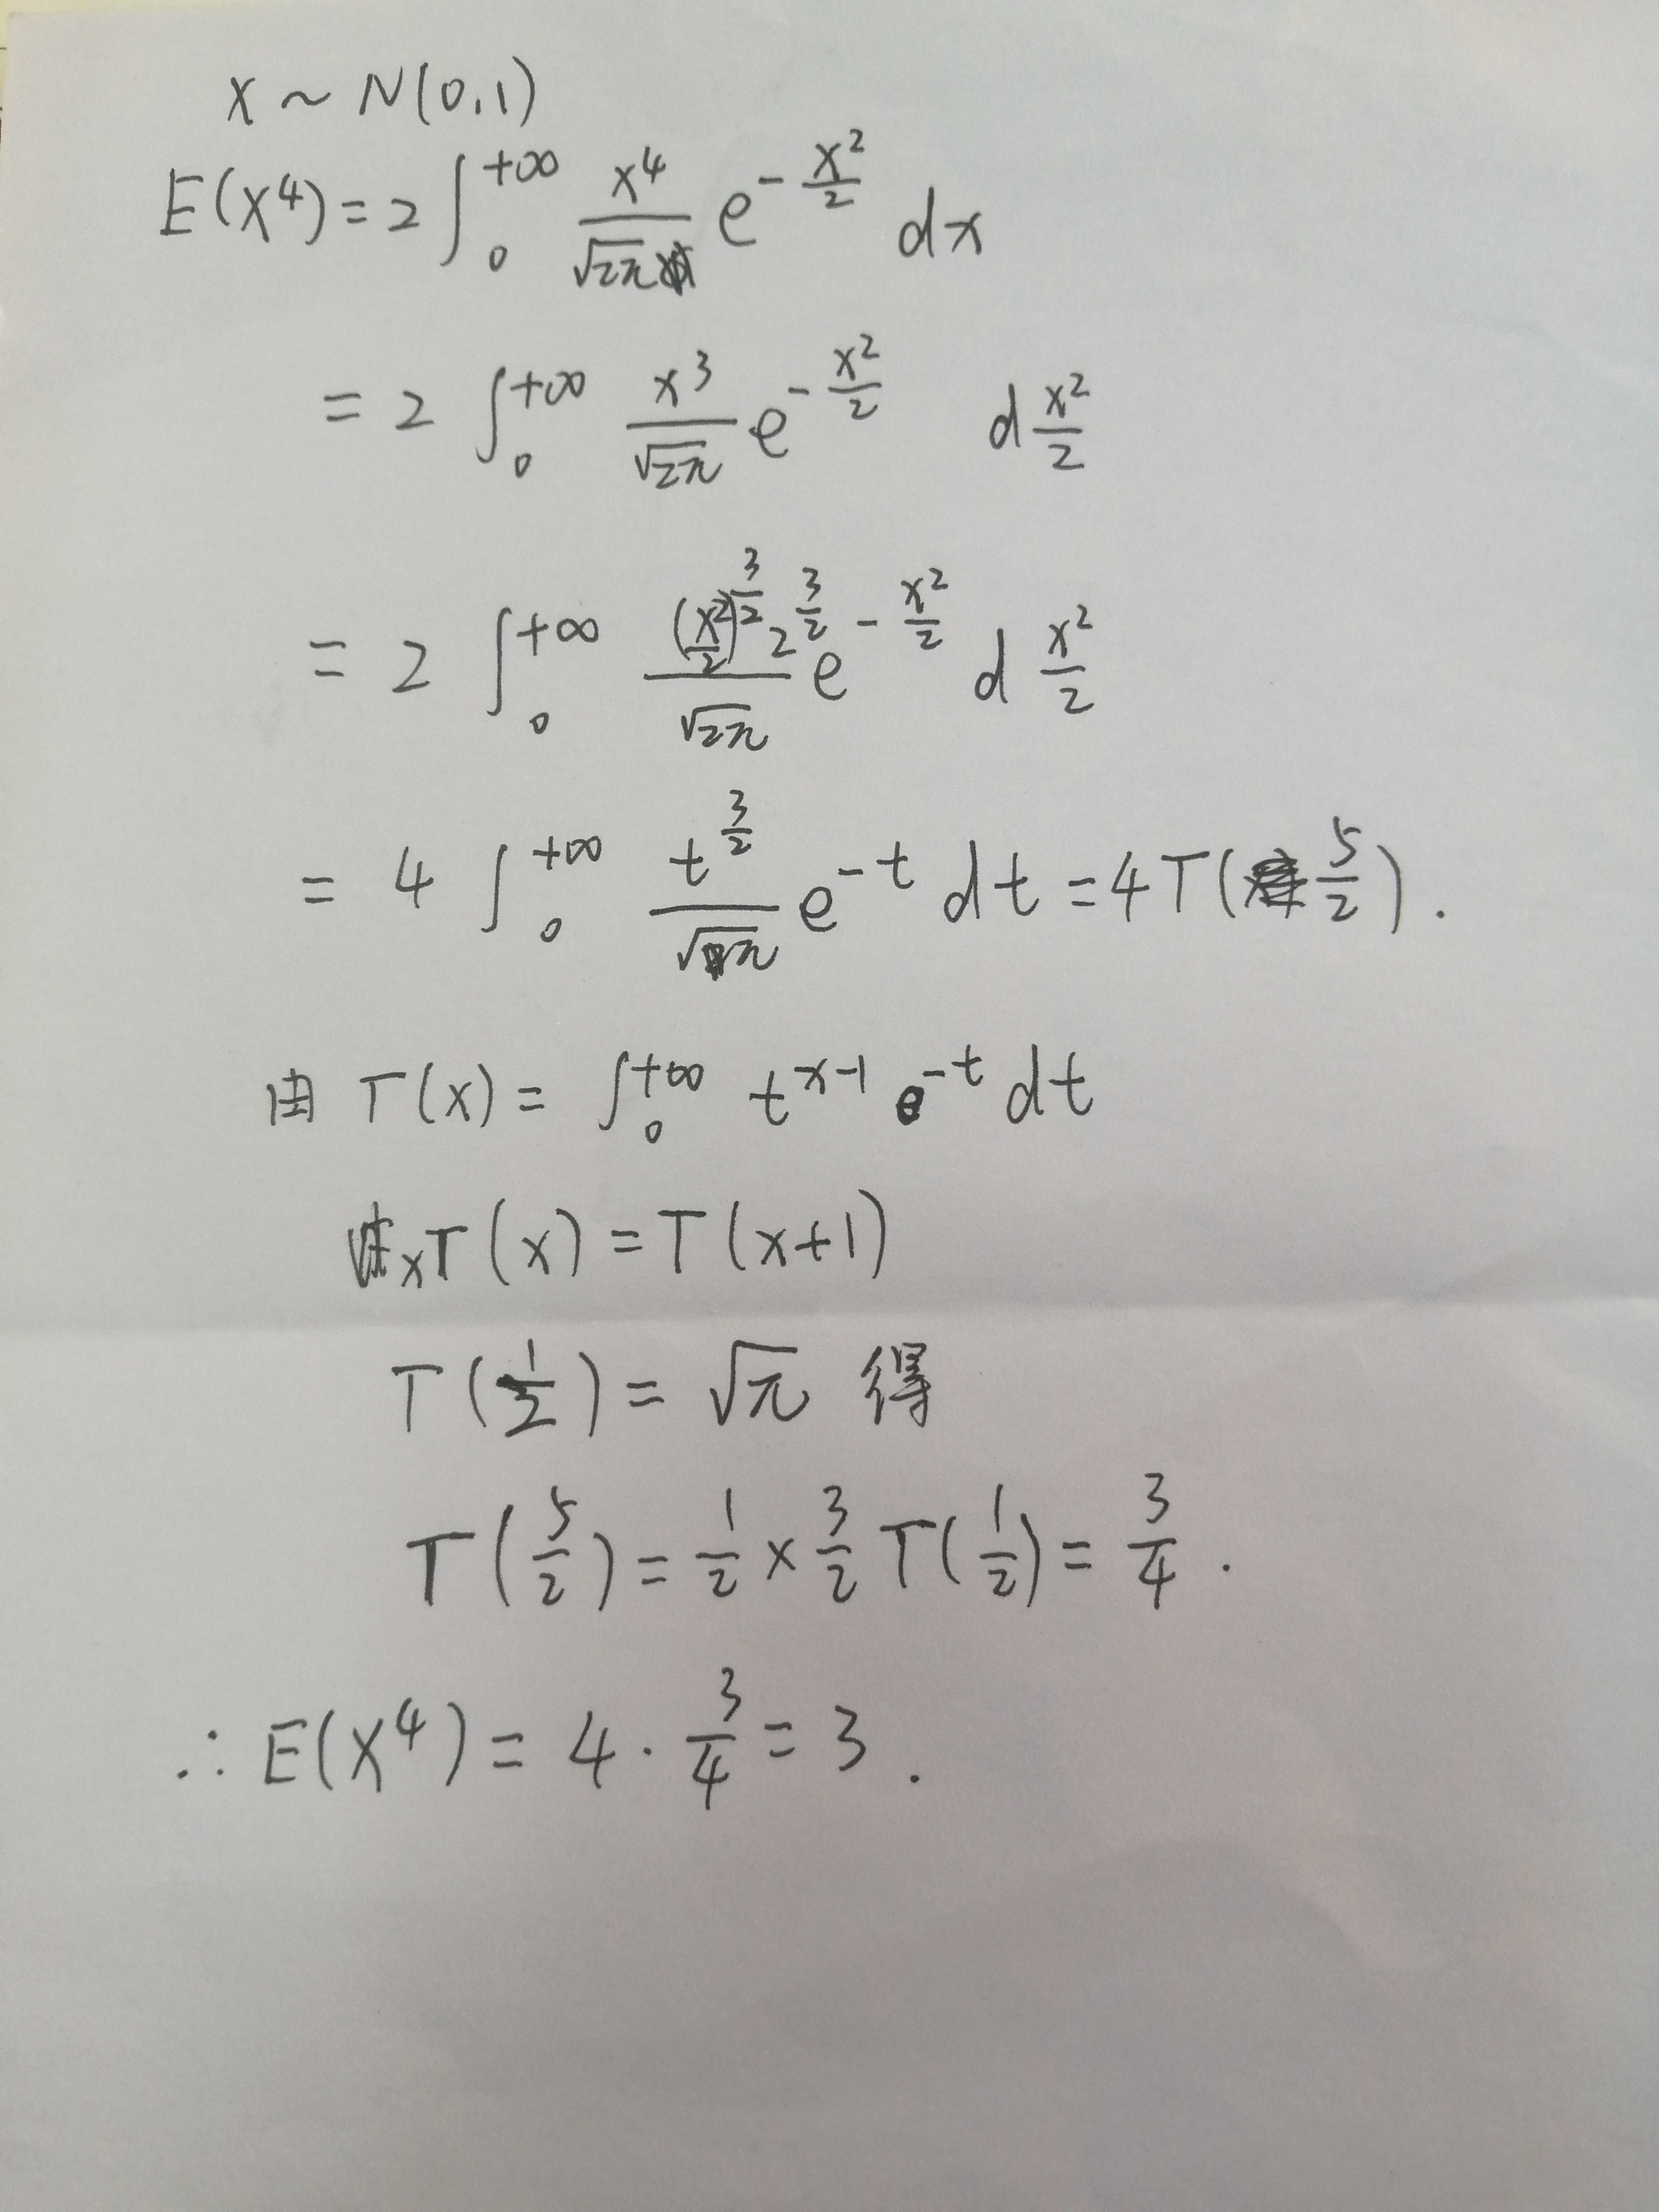 X ~ N(0,1)
E(X⁴) = 2 ∫₀^{+∞} \frac{x⁴}{\sqrt{2π}} e^{-\frac{x²}{2}} dx
= 2 ∫₀^{+∞} \frac{x³}{\sqrt{2π}} e^{-\frac{x²}{2}} d\frac{x²}{2}
= 2 ∫₀^{+∞} \frac{(\frac{x²}{2})^{\frac{3}{2}} 2^{\frac{3}{2}}}{\sqrt{2π}} e^{-\frac{x²}{2}} d\frac{x²}{2}
= 4 ∫₀^{+∞} \frac{t^{\frac{3}{2}}}{\sqrt{π}} e^{-t} dt = 4 T(\frac{5}{2}).
由 T(x) = ∫₀^{+∞} t^{x-1} e^{-t} dt
xT(x) = T(x+1)
T(\frac{1}{2}) = \sqrt{π} 得
T(\frac{5}{2}) = \frac{1}{2} × \frac{3}{2} T(\frac{1}{2}) = \frac{3}{4}.
∴ E(X⁴) = 4 · \frac{3}{4} = 3.